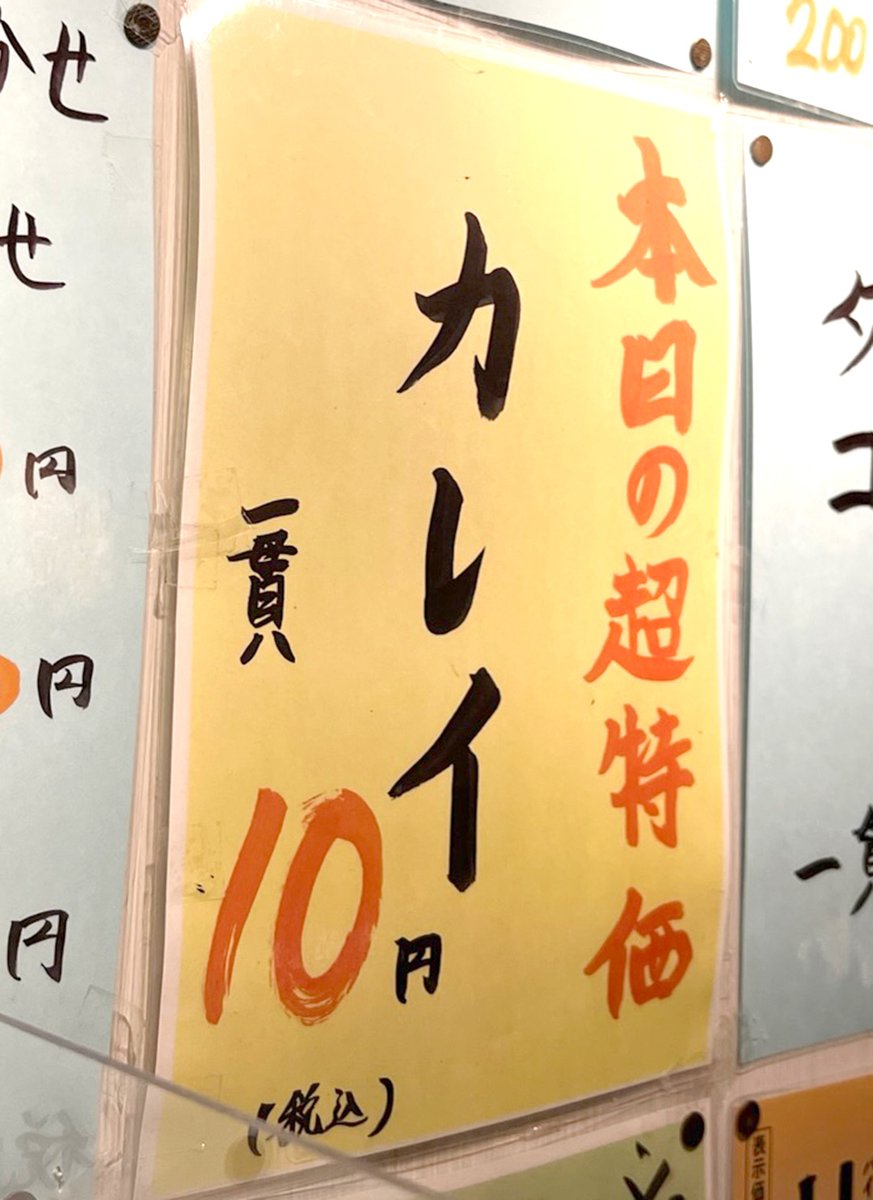 本日の超特価
カレイ
一貫
10円
(税込)
200
せ
せ
円
円
円
表示価